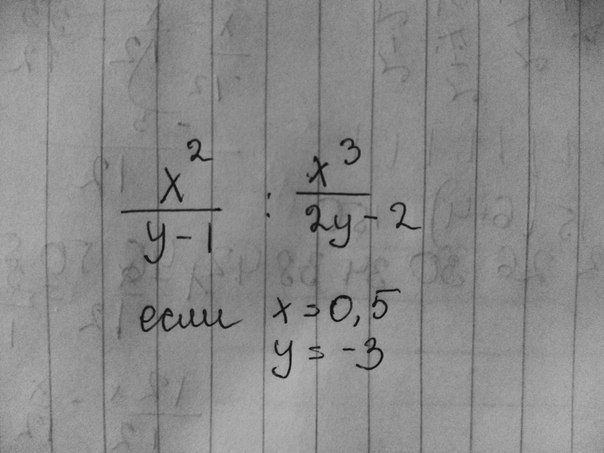 x² / (y-1) : x³ / (2y-2)
если x=0,5
y=-3